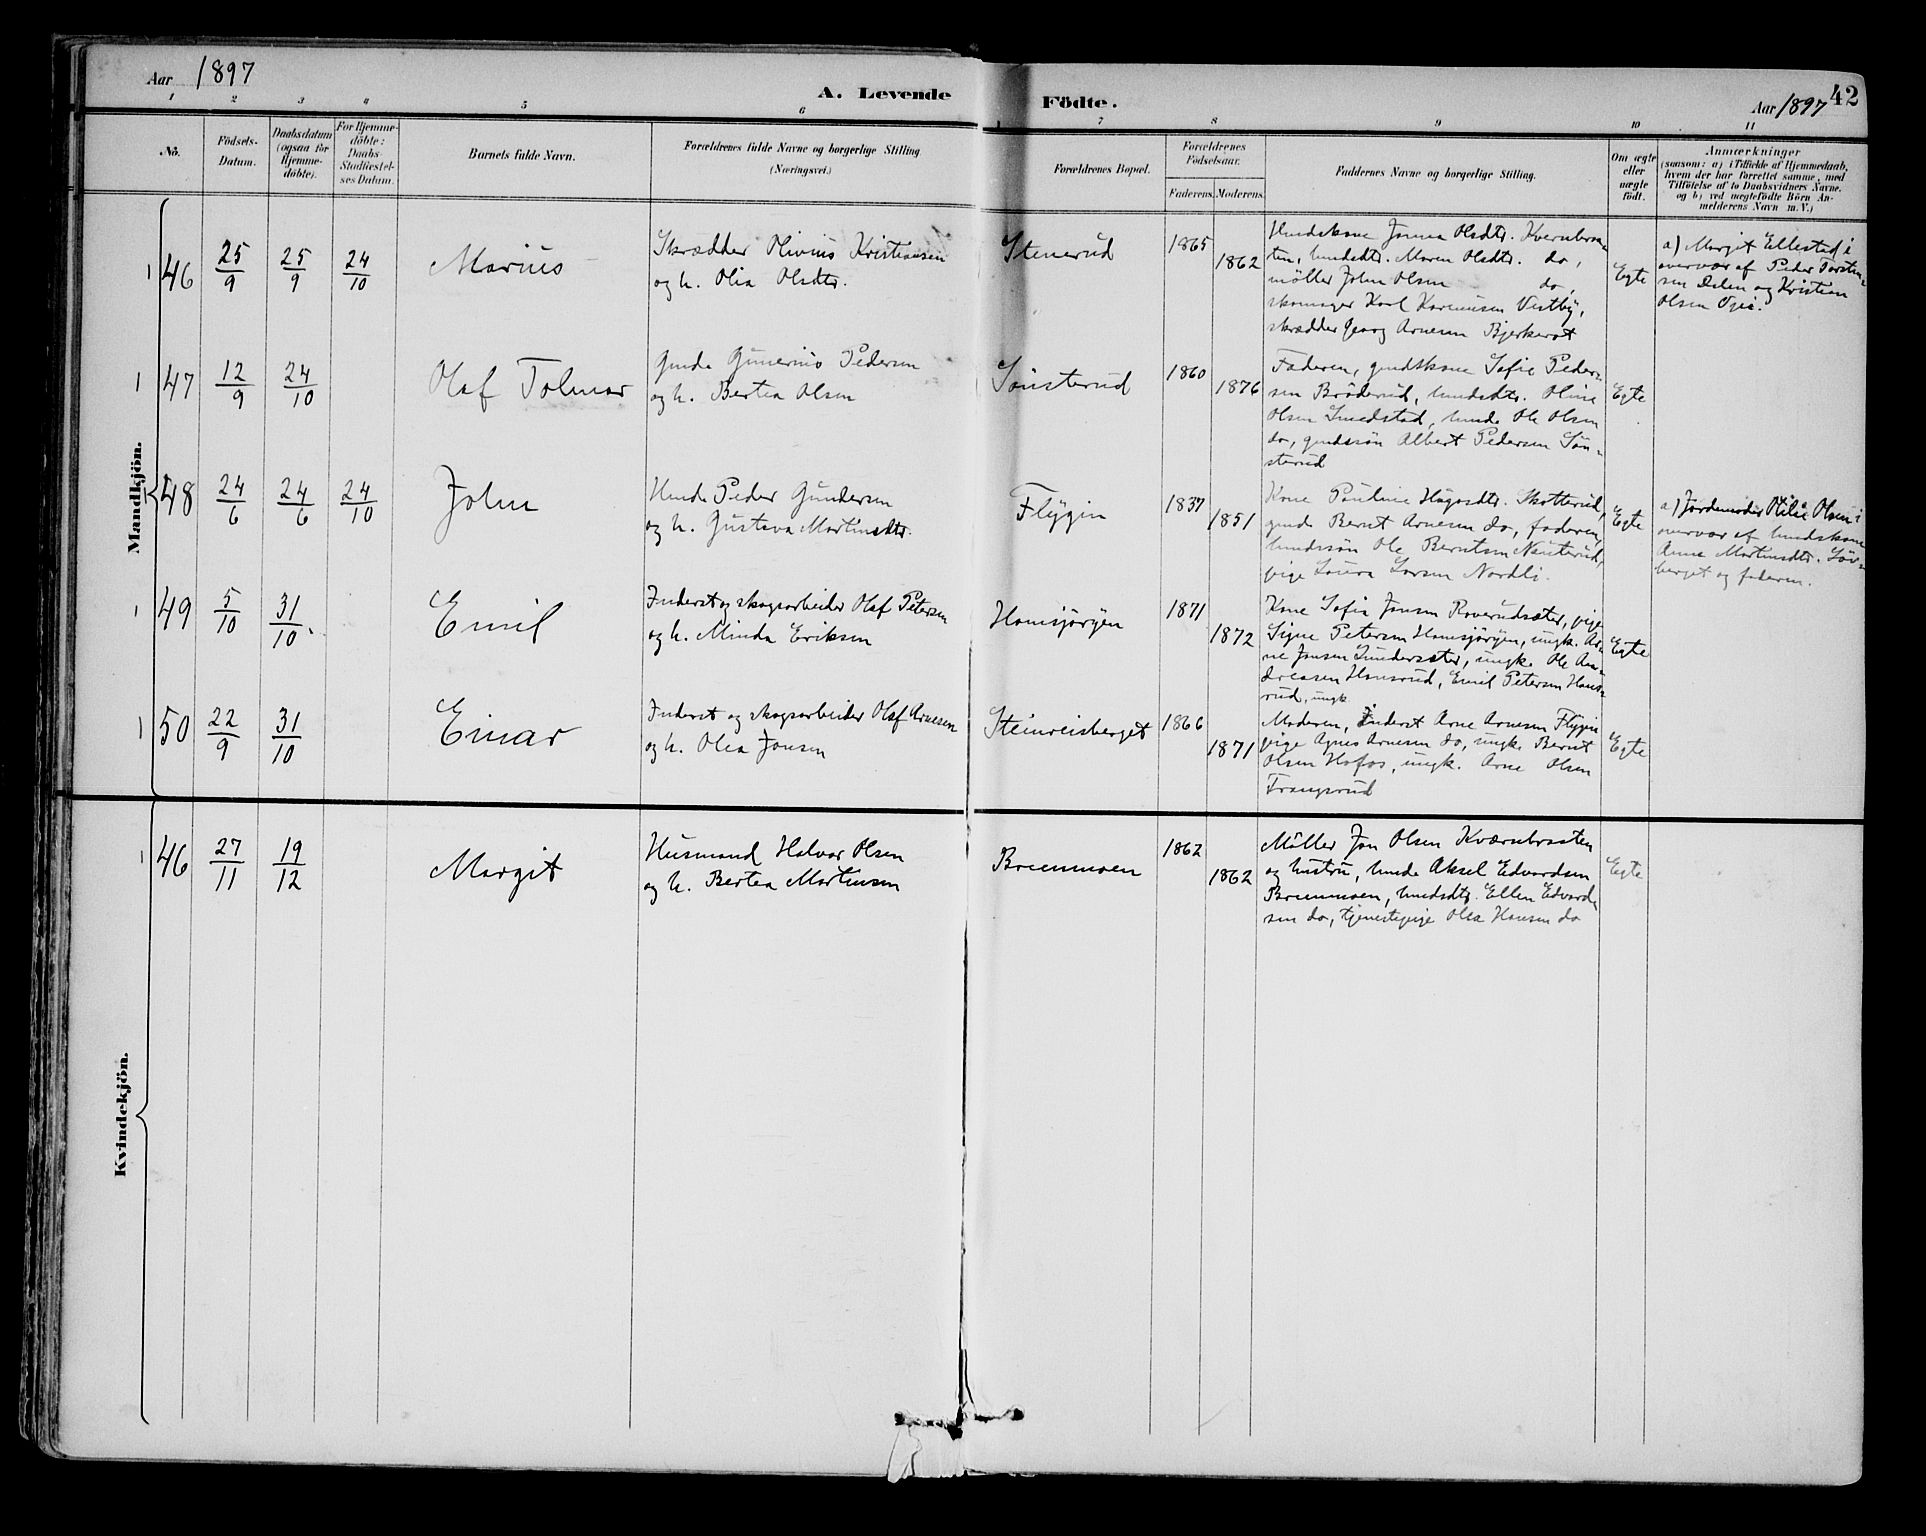 Aar 1897
A. Levende Födte.
Aar 1897
42
1 2 3 4 5 6 7 8 9 10 11
No.
Födsels-
Datum.
Daabsdatum
(ogsaa for
Hjemme-
döbte).
For Hjemme-
döbte:
Daabs-
Stadfæstel-
ses Datum.
Barnets fulde Navn.
Forældrenes fulde Navne og borgerlige Stilling
(Næringsvei.)
Forældrenes Bopæl.
Forældrenes
Födselsaar.
Faderens. Moderens.
Faddernes Navne og borgerlige Stilling.
Om ægte
eller
uægte
födt.
Anmærkninger
(saasom: a) i Tilfælde af Hjemmedaab,
hvem der har forrettet samme, med
Tilföielse af to Daabsvidners Navne.
og b) ved uægtefödte Börn An-
melderens Navn m. V.)
Mandkjön.
1 46 25/9 25/9 24/10 Marius
Skrædder Olivius Kristiansen
og h. Olia Olsdtr.
Stenerud
1865
1862
Hmdskone Jonna Olsdtr. Kvernbraa-
ten, hmdsdtr. Maren Olsdtr. do,
möller John Olsen do,
skomager Karl Vestby,
skrædder Georg Arnesen
Egte
a) Margit Ellestad i
overvær af Peder Torsten-
sen Dalen og Kristian
Olsen
1 47 12/9 24/10 Olaf Tolmar
Gmd. Gunerius Pedersen
og h. Bertea Olsen
Sönsterud
1860
1876
Faderen, gmdskone Sofie Peder-
sen Bröderud, hmdsdtr. Oline
Olsen Smedstad, hmd. Ole Olsen
do, gmdssön Albert Pedersen Sön-
sterud
Egte
1 48 24/6 24/6 24/10 John
Hmd. Peder Gundersen
og h. Gustava Martinsdtr.
Flygin
1837
1851
Kone Pauline Skotterud,
gmd. Bernt Arnesen do, faderen,
hmdssön Ole Berntsen
pige Laura Larsen Nordli.
Egte
a) Jordemoder Otilie Olsen i
overvær af hmdskone
Anne Martinsdtr. Löv-
berget og faderen.
1 49 5/10 31/10. Emil
Inderst og skogsarbeider Olaf Petersen
og h. Minda Eriksen
Hamsjöryen
1871
1872
Kone Sofia Jonsen Roverudsæter, pige
Signe Petersen Hamsjöryen, ungk. Ar-
ne Jonsen Ole An-
dreasen Hansrud, Emil Petersen Hans-
rud, ungk
Egte
1 50 22/9 31/10 Einar
Inderst og skogsarbeider Olaf Arnesen
og h. Olea Jonsen
Steinreisberget
1866
1871
Moderen, Inderst Arne Arnesen Flygin
pige Agnes Arnesen do, ungk. Bernt
Olsen Hofos, ungk. Arne Olsen
Frangsrud
Egte
Kvindekjön.
1 46 27/11 19/12 Margit
Husmand Halvor Olsen
og h. Bertea Martinsen
Brenmoen
1862
1862
Möller Jon Olsen Kværnbraaten
og hustru, hmd. Aksel Edvardsen
Brenmoen, hmdsdtr. Ellen Edvard-
sen do, tjenestepige Olea Hansen do
Egte